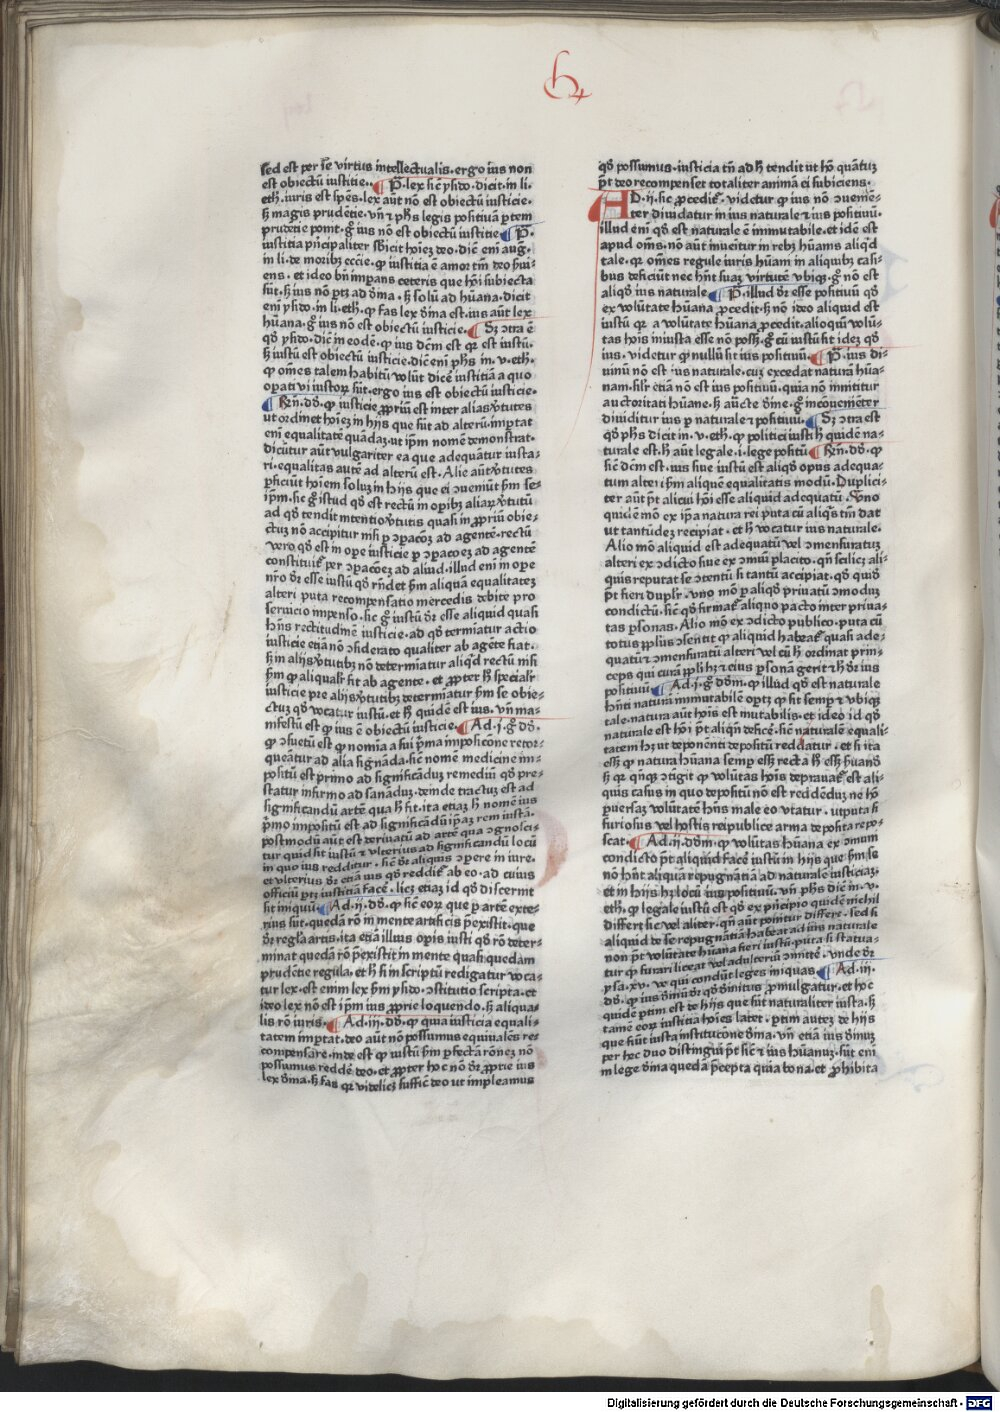 sed est per se virtus intellectualis. ergo ius non
est obiectū iustitie. P̄. lex s̄m ysido. dicit in li.
eth. iuris est sp̄es. lex aūt nō est obiectū iusticie.
sꝫ magis prudētie. vn̄ ⁊ ph̄s legis positiuā ꝑtem
prudētie ponit. gͦ ius nō est obiectū iustitie P̄.
iustitia pͥncipaliter sb̄icit hoiez deo. dic̄ em̄ aug̃.
in li. de moribꝫ eccīe. ꝙ iustitia ē amor tm̄ deo ẜui-
ens. et ideo bn̄ imꝑans ceteris que hōi subiecta
sūt. sꝫ ius nō ꝑtꝫ ad dīna. sꝫ solū ad hūana. dicit
em̄ ysido. in li. eth. ꝙ fas lex dīna est. ius aūt lex
hūana. gͦ ius nō est obiectū iusticie. Sꝫ ↄtra ē
qd̄ ysido. dic̄ in eodē. ꝙ ius dc̄m est qꝛ est iustū.
sꝫ iustū est obiectū iusticie. dic̄ em̄ ph̄s in. v. eth.
ꝙ om̄es talem habitū volūt dicē iustitiā a quo
oꝑatiui iustoꝝ sūt. ergo ius est obiectū iusticie.
Rn̄. dd̄. ꝙ iusticie ꝓpriū est inter alias v̓tutes
ut ordinet hoiez in hijs que sūt ad alterū. imꝑtat
em̄ equalitatē quādaꝫ. ut ip̄m nomē demonstrat.
dicūtur aūt vulgariter ea que adequātur iusta-
ri. equalitas autē ad alterū est. Alie aūt v̓tutes
ꝑficiūt hoiem soluꝫ in hijs que ei ↄueniūt s̄m se-
ip̄m. sic gͦ istud qd̄ est rectū in oꝑibꝫ aliaꝝ v̓tutū
ad qd̄ tendit intentio v̓tutis quasi in ꝓpriū obie-
ctuꝫ nō accipitur nisi ꝑ ↄpacōeꝫ ad agentē. rectū
vero qd̄ est in oꝑe iusticie ꝑ ↄpacoeꝫ ad agentē
constituit̃ per ↄpacōeꝫ ad aliud. illud em̄ in oꝑe
nr̄o dr̄ esse iustū qd̄ rn̄det s̄m aliquā equalitateꝫ
alteri puta recompensatio mercedis debite pro
seruicio impenso. sic gͦ iustū dr̄ esse aliquid quasi
hn̄s rectitudinē iusticie. ad qd̄ termiatur actio
iusticie etiā nō ↄsiderato qualiter ab agēte fiat.
sꝫ in alijs v̓tutibꝫ nō determiatur aliqͥd rectū nisi
s̄m ꝙ aliqualr̄ fit ab agente. et ꝓpter hͦ specialr̄
iusticie pre alijs v̓tutibꝫ determiatur s̄m se obie-
ctuꝫ qd̄ vocatur iustū. et hͦ quidē est ius. vn̄ ma-
nifestū est ꝙ ius ē obiectū iusticie. Ad. j. gͦ dd̄.
ꝙ ↄsuetū est ꝙ nomia a sui pͥma imposicōne retor-
queātur ad alia signāda. sic nomē medicine im-
positū est primo ad significāduꝫ remediū qd̄ pre-
statur infirmo ad sanāduꝫ. deinde tractuꝫ est ad
significandū artē qua hͦ fit. ita etiaꝫ hͦ nomē ius
pͥmo impositū est ad significādū ipsaꝫ rem iustā.
postmodū aūt est deriuatū ad artē qua ↄgnosci-
tur quid sit iustū ⁊ vlterius ad significandū locū
in quo ius redditur. sic dr̄ aliquis ↄꝑere in iure.
et vlterius dr̄ etiā ius qd̄ reddit̃ ab eo. ad cuius
officiū ꝑtꝫ iustitiā facē. licꝫ etiaꝫ id qd̄ discernit
sit iniquū Ad. ij. dd̄. ꝙ sic eoꝝ que ꝑ artē exte-
rius sūt. quedā rō in mente artificis p̄existit. que
dr̄ regĺa artis. ita etiā illius oꝑis iusti qd̄ rō deter-
minat quedā rō p̄existit in mente quasi quedam
prudētie regula. et hͦ si in scriptū redigatur voca-
tur lex. est enim lex s̄m ysido. ↄstitutio scripta. et
ideo lex nō est ip̄m ius ꝓprie loquendo. sꝫ aliqua-
lis rō iuris. Ad. iij. dd̄. ꝙ quia iusticia equali-
tatem imꝑtat. deo aūt nō possumus equiualēs re-
compensare. inde est ꝙ iustū s̄m ꝑfectā rōneꝫ nō
possumus reddē deo. et ꝓpter hoc nō dr̄ ꝓprie ius
lex dīna. sꝫ fas qꝛ videlicꝫ suffic̄ deo ut impleamus
qd̄ possumus. iusticia tn̄ ad hͦ tendit ut hō quātuꝫ
p̄t deo recompenset totaliter animā ei subiciens.
AD. ij. sic ꝓcedit̃. videtur ꝙ ius nō ↄueniē-
ter diuidatur in ius naturale ⁊ ius positiuū.
illud em̄ qd̄ est naturale ē immutabile. et idē est
apud om̄s. nō aūt inueītur in rebꝫ hūanis aliqͥd
tale. qꝛ om̄es regule iuris hūani in aliquibꝫ casi-
bus deficiūt nec hn̄t suaꝫ virtutē vbiqꝫ. gͦ nō est
aliqd̄ ius naturale P̄. illud dr̄ esse positiuū qd̄
ex volūtate hūana ꝓcedit. sꝫ nō ideo aliquid est
iustū qꝛ a volūtate hūana ꝓcedit. alioquin volū-
tas hoīs iniusta esse nō possꝫ. gͦ cū iustū sit ideꝫ qd̄
ius. videtur ꝙ nullū sit ius positiuū. P̄. ius di-
uinū nō est ius naturale. cuꝫ excedat naturā hūa-
nam. silr̄ etiā nō est ius positiuū. quia nō innititur
auctoritati hūane. sꝫ auc̄te diīne. gͦ incōuenienter
diuiditur ius ꝑ naturale ⁊ positiuū. Sꝫ ↄtra est
qd̄ ph̄s dicit in. v. eth. ꝙ politici iusti hͦ quidē na-
turale est. hͦ aūt legale. i. lege positū Rn̄. dd̄. ꝙ
sic dc̄m est. ius siue iustū est aliqd̄ opus adequa-
tum alteri s̄m aliquē equalitatis modū. Duplici-
ter aūt p̄t alicui hōi esse aliquid adequatū. Vno
quidē mō ex ip̄a natura rei puta cū aliqͥs tm̄ dat
ut tantūdeꝫ recipiat. et hͦ vocatur ius naturale.
Alio mō aliquid est adequatū vel ↄmensuratuꝫ
alteri ex ↄdicto siue ex ↄmuni placito. qn̄ scilicꝫ ali-
quis reputat se ↄtentū si tantū accipiat. qd̄ quidē
p̄t fieri duplr̄. vno mō ꝑ aliqd̄ priuatū ↄmoduꝫ
condictū. sic qd̄ firmat̃ aliquo pacto inter priua-
tas ꝑsonas. Alio mō ex ↄdicto publico. puta cū
totus ppl̄us ↄsentit ꝙ aliquid habeat̃ quasi ade-
quatū ⁊ ↄmensuratū alteri vel cū hͦ ordinat prin-
ceps qui curā ppl̄i hꝫ ⁊ eius ꝑsonā gerit ⁊ hͦ dr̄ ius
positiuū Ad. j. gͦ dd̄m. ꝙ illud qd̄ est naturale
hn̄ti naturā immutabilē oꝑtꝫ ꝙ sit semꝑ ⁊ vbiqꝫ
tale. natura aūt hoīs est mutabilis. et ideo id qd̄
naturale est hōi p̄t aliqn̄ deficē. sic naturalē equali-
tatem hꝫ ut deponenti depositū reddatur. et si ita
essꝫ ꝙ natura hūana semꝑ essꝫ recta hͦ essꝫ ẜuandū
sꝫ qꝛ qn̄qꝫ ↄtigit ꝙ volūtas hoīs deprauat̃ est ali-
quis casus in quo depositū nō est reddēduꝫ ne hō
ꝑuersaꝫ volūtatē hn̄s male eo vtatur. utputa si
furiosus vel hostis reipublice arma deposita repo-
scat. Ad. ij. dd̄m. ꝙ volūtas hūana ex ↄmuni
condicto p̄t aliquid facē iustū in hijs que s̄m se
nō hn̄t aliquā repugnātiā ad naturalē iusticiaꝫ.
et in hijs hꝫ locū ius positiuū. vn̄ ph̄s dic̄ in. v.
eth. ꝙ legale iustū est qd̄ ex pͥncipio quidē nichil
differt sic vel aliter. qn̄ aūt ponitur differt. sed si
aliquid de se repugnātiā habeat ad ius naturale
non p̄t volūtate hūana fieri iustū. puta si statua-
tur ꝙ furari liceat vel adulteriū ↄmittē. vnde dr̄
ysa. xv. ve qui condūt leges iniquas Ad. iij.
dd̄. ꝙ ius diuīnū dr̄ qd̄ diuinitus ꝓmulgatur. et hoc
quidē ꝑtim est de hijs que sūt naturaliter iusta. sꝫ
tamē eoꝝ iustitia hoīes latet. ꝑtim autem de hijs
que fiūt iusta institucōne dīna. vn̄ etiā ius diuinuꝫ
per hec duo distingui p̄t sic ⁊ ius hūanuꝫ. sūt em̄
in lege dīna quedā p̄cepta quia bona. et ꝓhibita
Digitalisierung gefördert durch die Deutsche Forschungsgemeinschaft - DFG